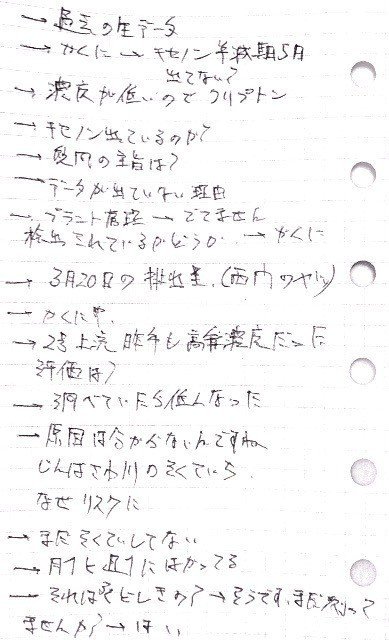 → 過去の生データ
→ かくに → キセノン半減期5日
出てない?
→ 濃度が低いので クリプトン
→ キセノン出ているのか?
→ 質問の主旨は?
→ データが出ていない理由
→ プラント管理 → でてません
検出されているかどうか. → かくに
→ 3月20日の排出量. (西内のヤツ)
→ かくに中.
→ 2号上流 昨年も高い濃度だった
評価は?
→ 調べていたら低くなった
→ 原因は分からないんですね
じんばさわ川のそくていち.
なぜ リスクに
→ まだそくていしてない
→ 月1と週1にはかってる
→ それは
→ そうです. まだ
ませんか? → はい